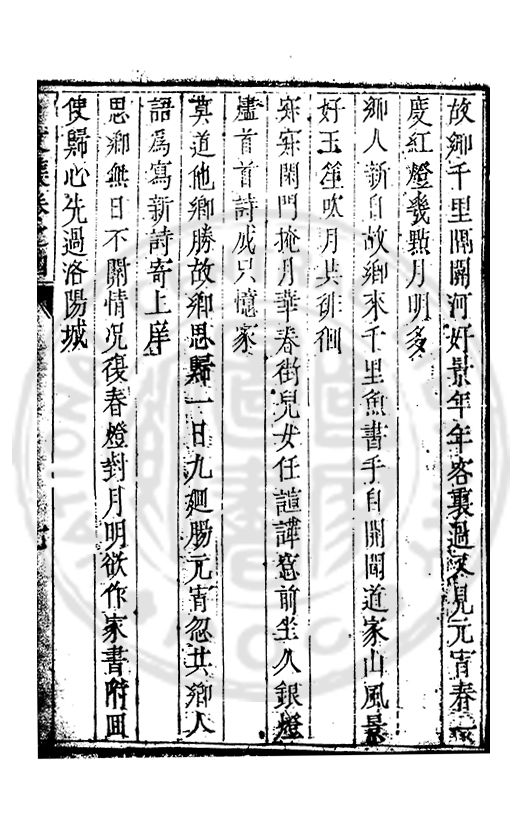 故鄉千里隔關河好景年年客裏過又見元宵春
度紅燈幾點月明多
鄉人新自故鄉來千里魚書手自開聞道家山風景
好玉笙吹月共徘徊
寂寂閑門掩月華春街兒女任諠譁窓前坐久銀燈
燼首首詩成只憶家
莫道他鄉勝故鄉思歸一日九廻腸元宵忽共鄉人
語爲寫新詩寄上庠
思鄉無日不關情况復春燈對月明欲作家書附囬
使歸心先過洛陽城